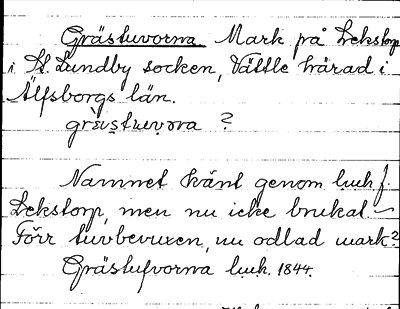 Grästuvorna Mark på Lekstorp
i St. Lundby socken, Vättle härad i
Älfsborgs län.
gräṣtuvo̩ra ?
Namnet känt genom luuk f.
Lekstorp, men nu icke brukat –
Förr tuvbevuxen, nu odlad mark?
Grästufvorna l.uuk. 1844.